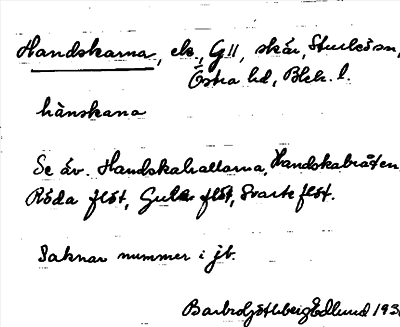 Handskarna, ek., G11, skär, Sturkö sn,
Östra hd, Blek. l.
hånskana
Se äv. Handskahallarna, Handskabråten
Röda flöt, Gula flöt, Svarte flöt.
Saknar nummer i jb.
Barbro Göthberg Edlund 193